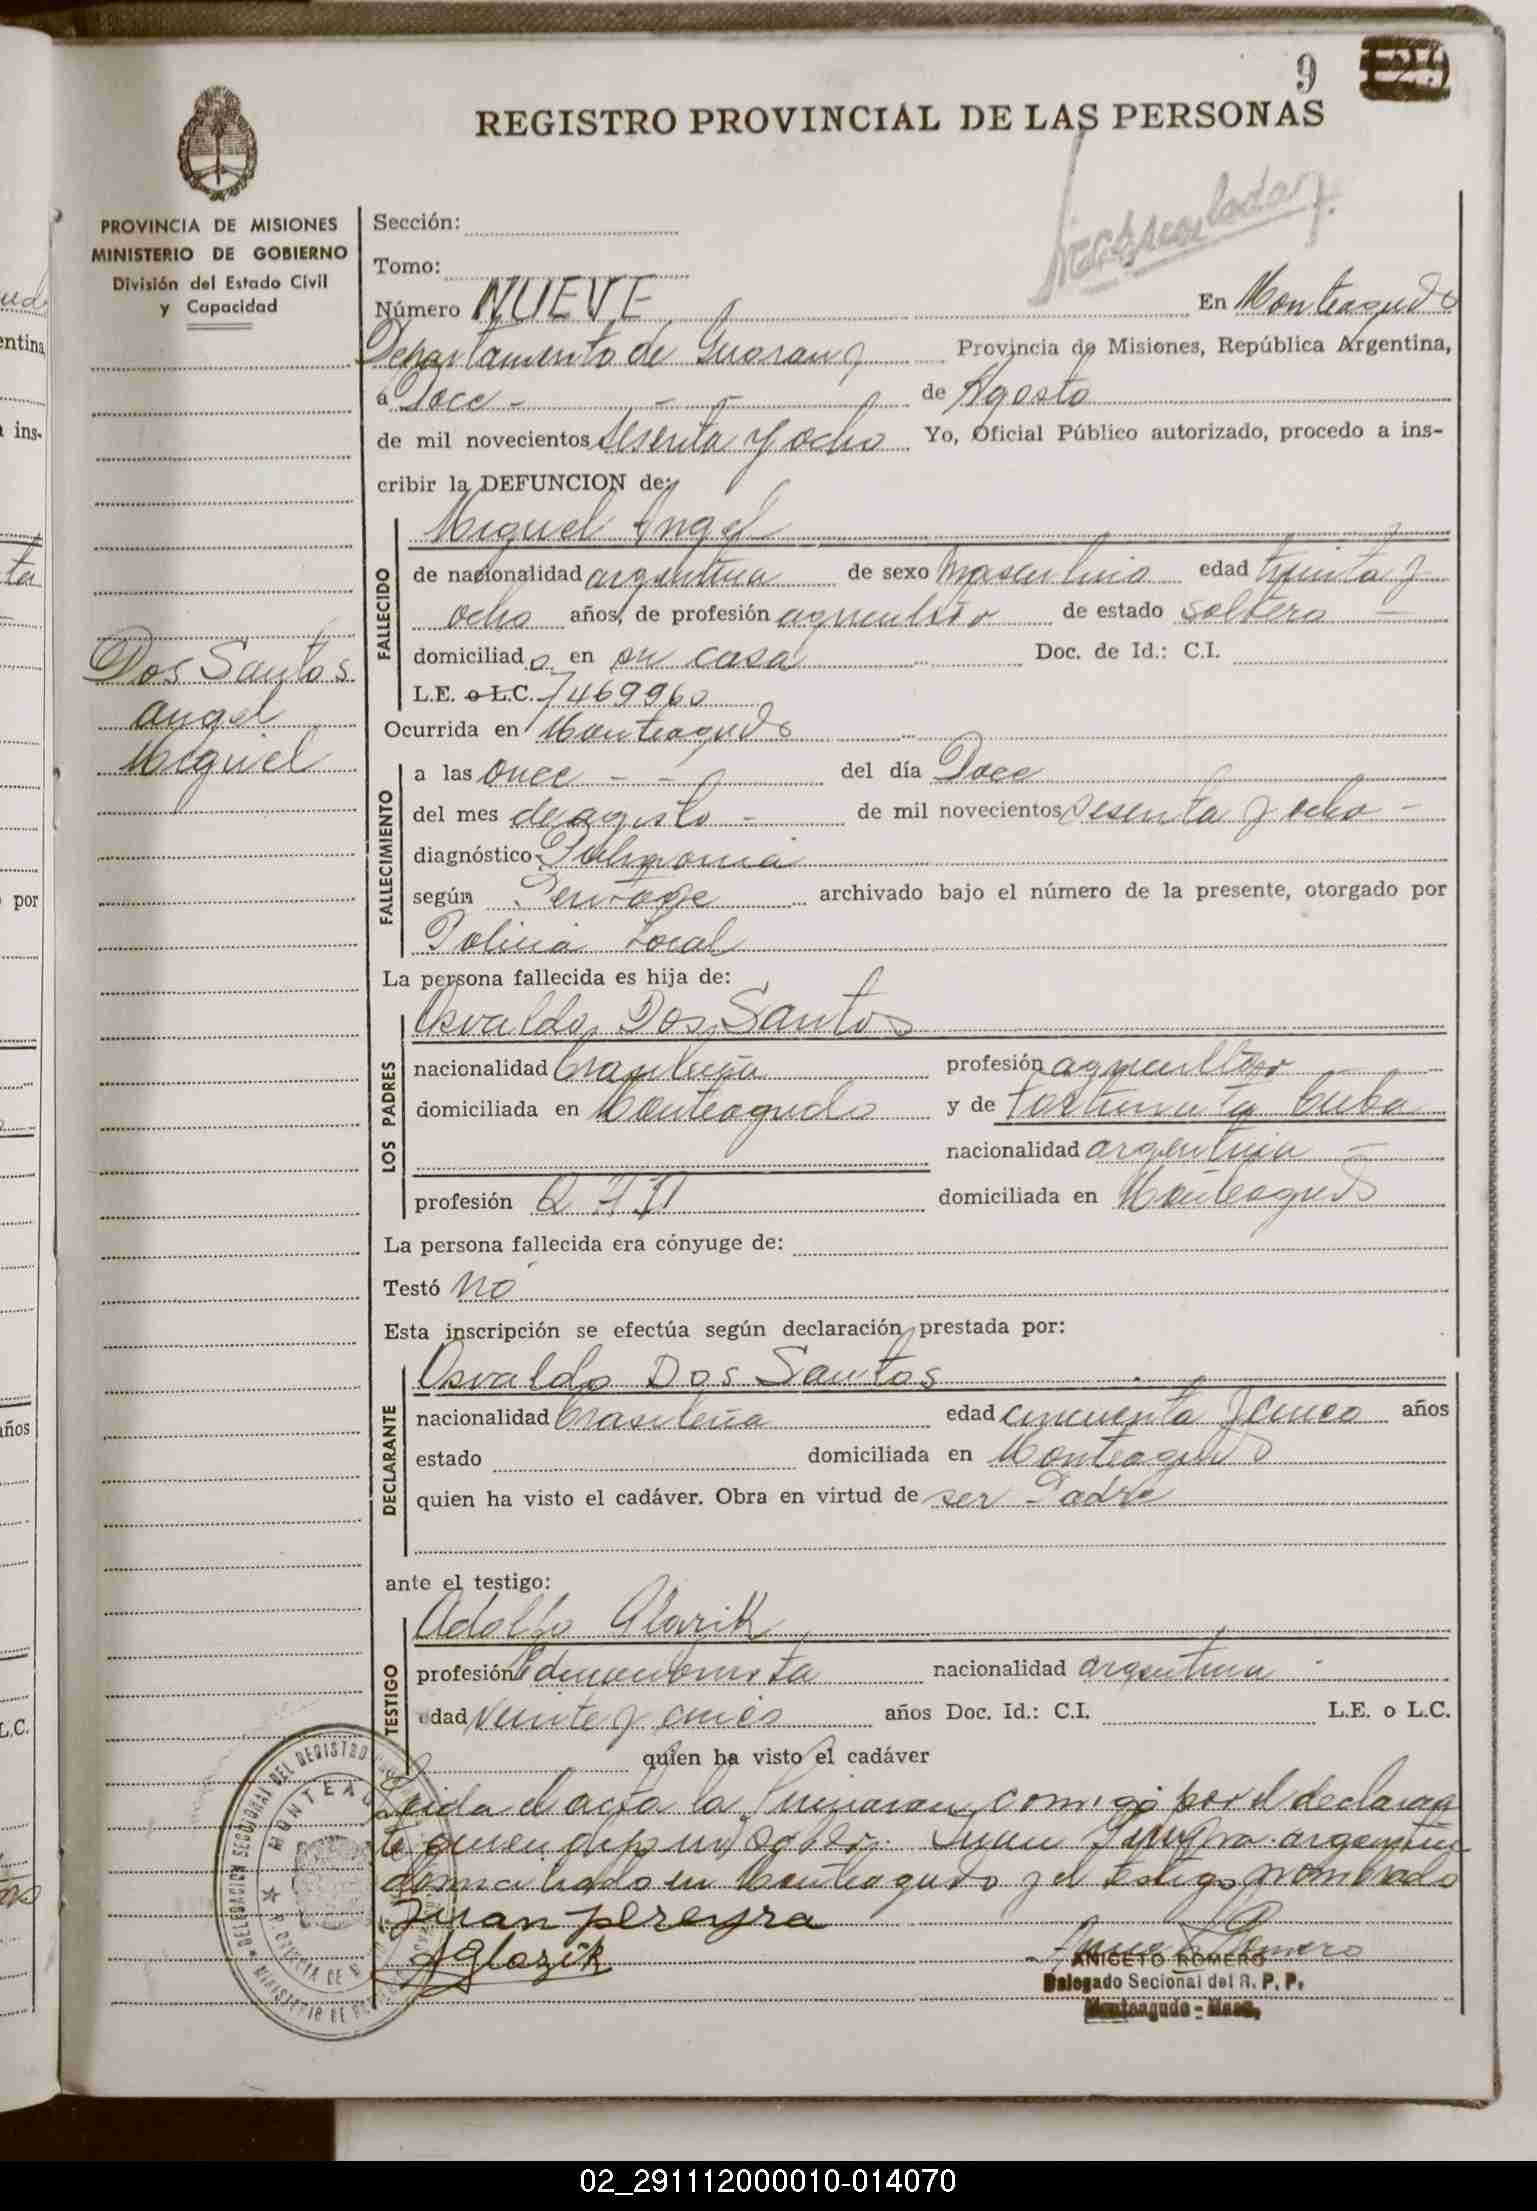 9
REGISTRO PROVINCIAL DE LAS PERSONAS
PROVINCIA DE MISIONES
MINISTERIO DE GOBIERNO
División del Estado Civil
y Capacidad
Sección:
Tomo:
Número NUEVE En Monteagudo
Departamento de Guarany Provincia de Misiones, República Argentina,
a Doce - - - de Agosto
de mil novecientos sesenta y ocho Yo, Oficial Público autorizado, procedo a ins-
cribir la DEFUNCION de:
Dos Santos
Angel
Miguel
FALLECIDO
Miguel Angel
de nacionalidad argentina de sexo Masculino edad treinta y
ocho años, de profesión agricultor de estado soltero -
domiciliado en su casa Doc. de Id.: C.I.
L.E. o L.C. 7469960
Ocurrida en Monteagudo
FALLECIMIENTO
a las once - - del día Doce
del mes de agosto - de mil novecientos sesenta y ocho -
diagnóstico
según archivado bajo el número de la presente, otorgado por
Policia Local
La persona fallecida es hija de:
LOS PADRES
Osvaldo Dos Santos
nacionalidad brasileña profesión agricultor
domiciliada en Monteagudo y de
nacionalidad argentina -
profesión Q.H.D. domiciliada en Monteagudo
La persona fallecida era cónyuge de:
Testó no
Esta inscripción se efectúa según declaración prestada por:
DECLARANTE
Osvaldo Dos Santos
nacionalidad brasileña edad cincuenta y cinco años
estado domiciliada en Monteagudo
quien ha visto el cadáver. Obra en virtud de ser Padre
ante el testigo:
TESTIGO
Adolfo Glazik
profesión nacionalidad argentina
edad veinte y cinco años Doc. Id.: C.I. L.E. o L.C.
quien ha visto el cadáver
Leida el acta la firmaron conmigo por el declaran
te quien dijo no saber. Juan Pereyra argentino
domiciliado en Monteagudo y el testigo nombrado
Juan pereyra
AGlazik
ANICETO ROMERO
Delegado Secional del R. P. P.
Monteagudo - Mnes.
DELEGACION SECCIONAL DEL REGISTRO
MONTEAGUDO
02_291112000010-014070